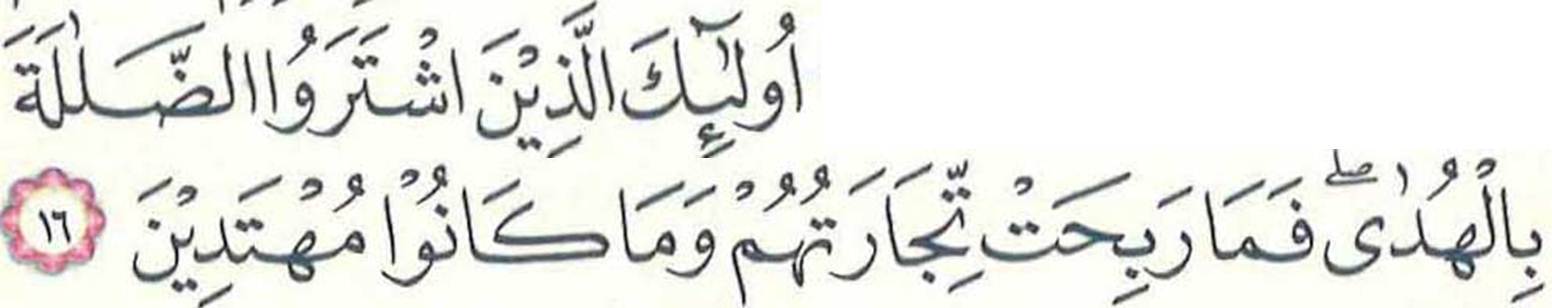 اُولٰۤىِٕكَ الَّذِيْنَ اشْتَرَوُا الضَّلٰلَةَ
بِالْهُدٰىۖ فَمَا رَبِحَتْ تِّجَارَتُهُمْ وَمَا كَانُوْا مُهْتَدِيْنَ ١٦